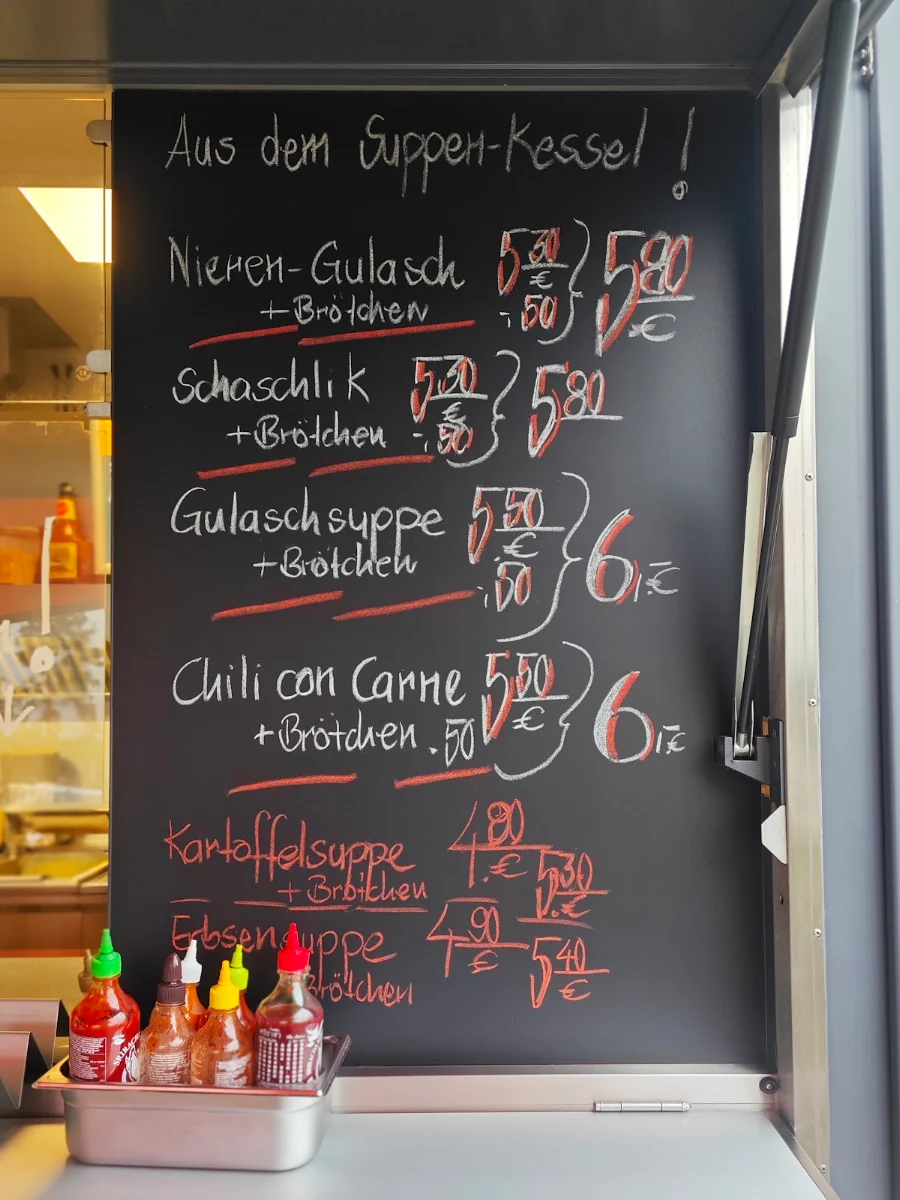 Aus dem Suppen-Kessel!
Nieren-Gulasch 5 30 € 5 80 €
+Brötchen -,50
Schaschlik 5,30 € 5 80
+Brötchen -,50
Gulaschsuppe 5 50 € 6,- €
+Brötchen -,50
Chili con Carne 5 50 € 6,- €
+Brötchen .50
Kartoffelsuppe 4 80 €
+Brötchen 5 30 €
Erbsensuppe 4 90 €
Brötchen 5 40 €
SRIRACHA